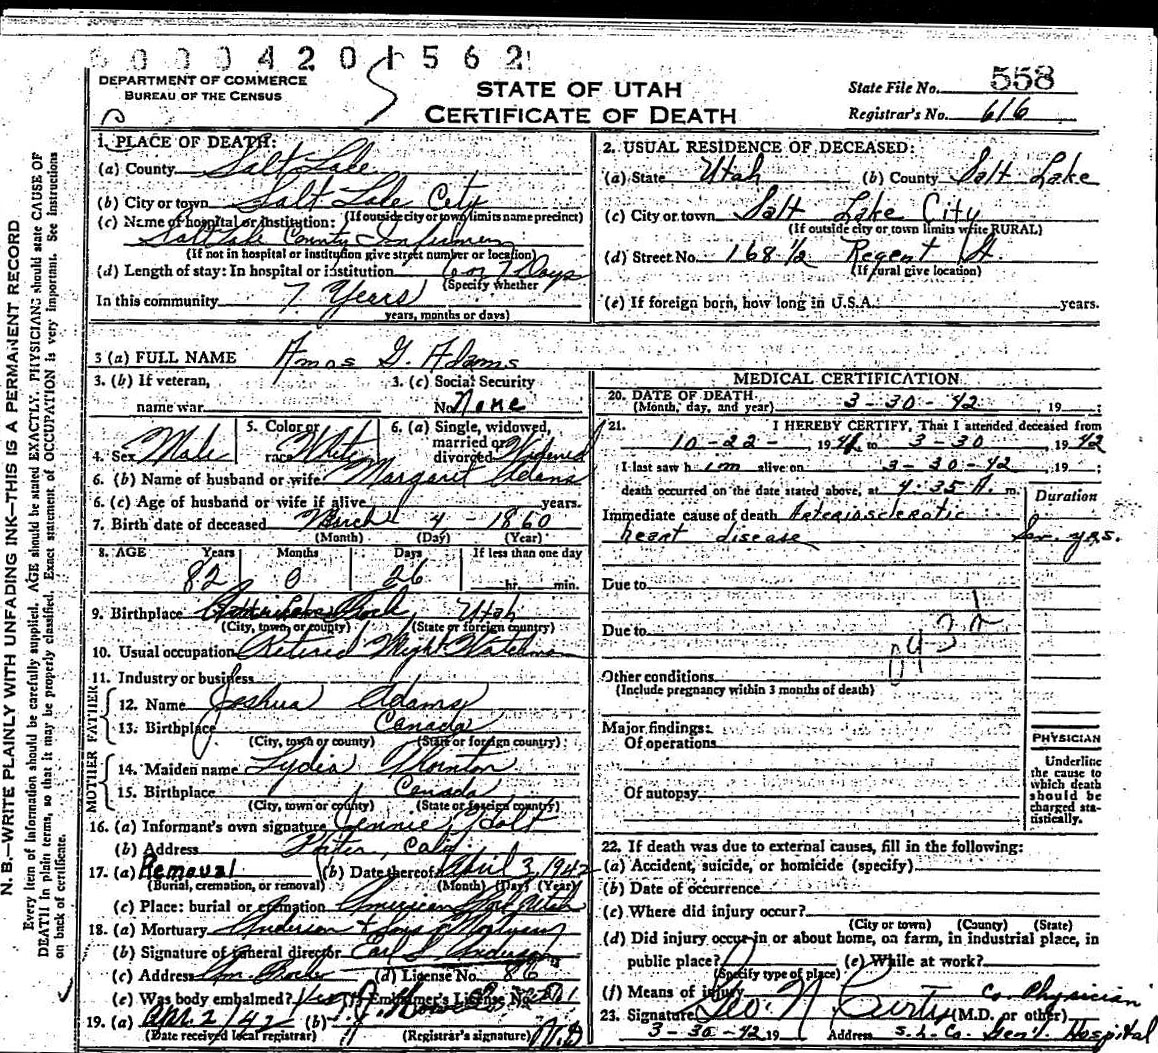 0000420 1562
DEPARTMENT OF COMMERCE
BUREAU OF THE CENSUS
STATE OF UTAH
CERTIFICATE OF DEATH
State File No. 558
Registrar's No. 616
N. B.—WRITE PLAINLY WITH UNFADING INK—THIS IS A PERMANENT RECORD
Every item of information should be carefully supplied. AGE should be stated EXACTLY. PHYSICIANS should state CAUSE OF
DEATH in plain terms, so that it may be properly classified. Exact statement of OCCUPATION is very important. See instructions
on back of certificate.
1. PLACE OF DEATH:
(a) County Salt Lake
(b) City or town Salt Lake City
(If outside city or town limits name precinct)
(c) Name of hospital or institution:
Salt Lake County Infirmary
(If not in hospital or institution give street number or location)
(d) Length of stay: In hospital or institution 6 or 7 Days
(Specify whether
In this community 7 Years
years, months or days)
2. USUAL RESIDENCE OF DECEASED:
(a) State Utah (b) County Salt Lake
(c) City or town Salt Lake City
(If outside city or town limits write RURAL)
(d) Street No. 168 1/2 Regent St.
(If rural give location)
(e) If foreign born, how long in U.S.A.: years.
3 (a) FULL NAME Amos G. Adams
3. (b) If veteran,
name war
3. (c) Social Security
No. None
4. Sex Male
5. Color or
race White
6. (a) Single, widowed,
married or
divorced Widowed
6. (b) Name of husband or wife Margaret Adams
6. (c) Age of husband or wife if alive years.
7. Birth date of deceased March 4 - 1860
(Month) (Day) (Year)
8. AGE Years Months Days If less than one day
82 0 26 hr. min.
9. Birthplace Utah
(City, town, or county) (State or foreign country)
10. Usual occupation Retired Night Watchman
11. Industry or business
FATHER
12. Name Joshua Adams
13. Birthplace Canada
(City, town or county) (State or foreign country)
MOTHER
14. Maiden name Lydia Thornton
15. Birthplace Canada
(City, town or county) (State or foreign country)
16. (a) Informant's own signature Jennie Holt
(b) Address Calif
17. (a) Removal (b) Date thereof April 3, 1942
(Burial, cremation, or removal) (Month) (Day) (Year)
(c) Place: burial or cremation American Fork Utah
18. (a) Mortuary Anderson & Sons Mortuary
(b) Signature of funeral director Anderson
(c) Address (d) License No. 86
(e) Was body embalmed? Yes (f) Embalmer's License No.
19. (a) Apr. 2/42 (b)
(Date received local registrar) (Registrar's signature) M.D
MEDICAL CERTIFICATION
20. DATE OF DEATH
(Month, day, and year) 3-30-42 19
21. I HEREBY CERTIFY, That I attended deceased from
10-22- 1941 to 3-30 1942
I last saw him alive on 3-30-42, 19
death occurred on the date stated above, at 4:35 A. m.
Duration
Immediate cause of death Arteriosclerotic
heart disease yrs.
Due to
Due to
Other conditions
(Include pregnancy within 3 months of death)
Major findings:
Of operations
Of autopsy
PHYSICIAN
Underline
the cause to
which death
should be
charged sta-
tistically.
22. If death was due to external causes, fill in the following:
(a) Accident, suicide, or homicide (specify)
(b) Date of occurrence
(c) Where did injury occur?
(City or town) (County) (State)
(d) Did injury occur in or about home, on farm, in industrial place, in
public place? (e) While at work?
(Specify type of place)
(f) Means of injury
23. Signature Geo. N. Curtis Co. Physician
(M.D. or other)
3-30-42 19 Address S.L. Co. Gen'l Hospital